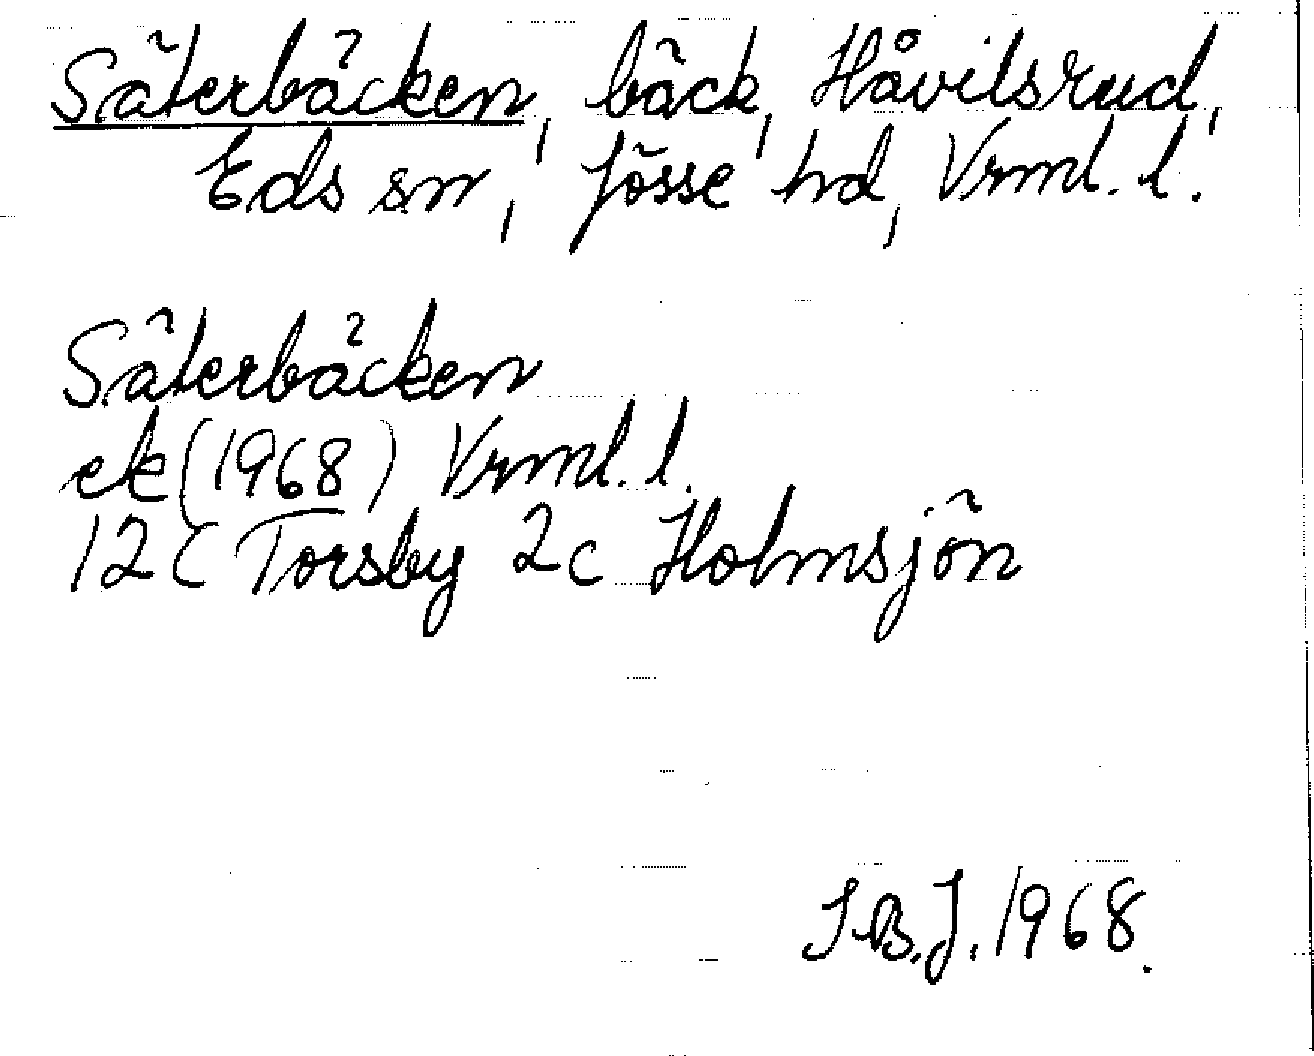 Säterbäcken, bäck, Håvilsrud,
Eds sn, Jösse hd, Vrml. l.
Säterbäcken
ek (1968) Vrml. l.
12C Torsby 2c Holmsjön
I.B.J. 1968.